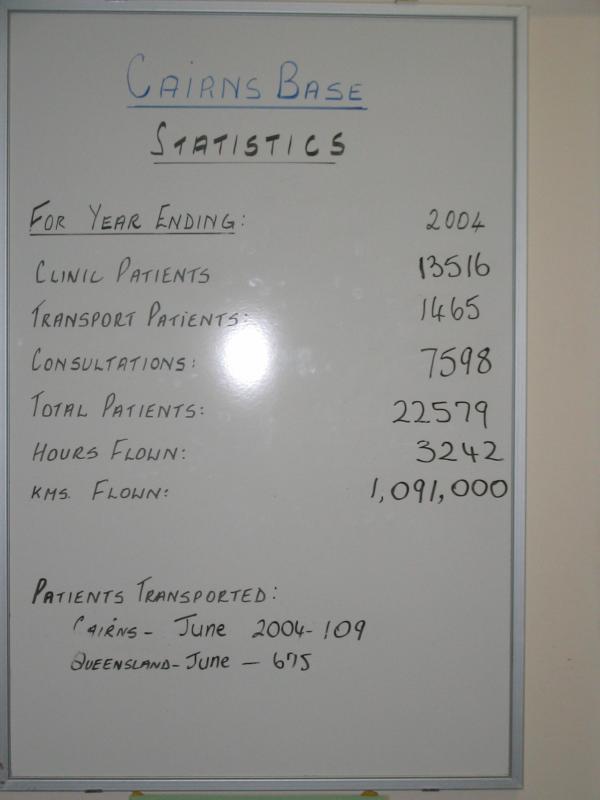 CAIRNS BASE
STATISTICS
FOR YEAR ENDING: 2004
CLINIC PATIENTS 13516
TRANSPORT PATIENTS: 1465
CONSULTATIONS: 7598
TOTAL PATIENTS: 22579
HOURS FLOWN: 3242
KMS. FLOWN: 1,091,000
PATIENTS TRANSPORTED:
CAIRNS - June 2004 - 109
QUEENSLAND - June - 675